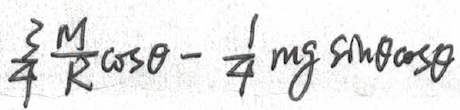 $\frac{3}{4} \frac{M}{R} \cos\theta - \frac{1}{4} mg \sin\theta \cos\theta$